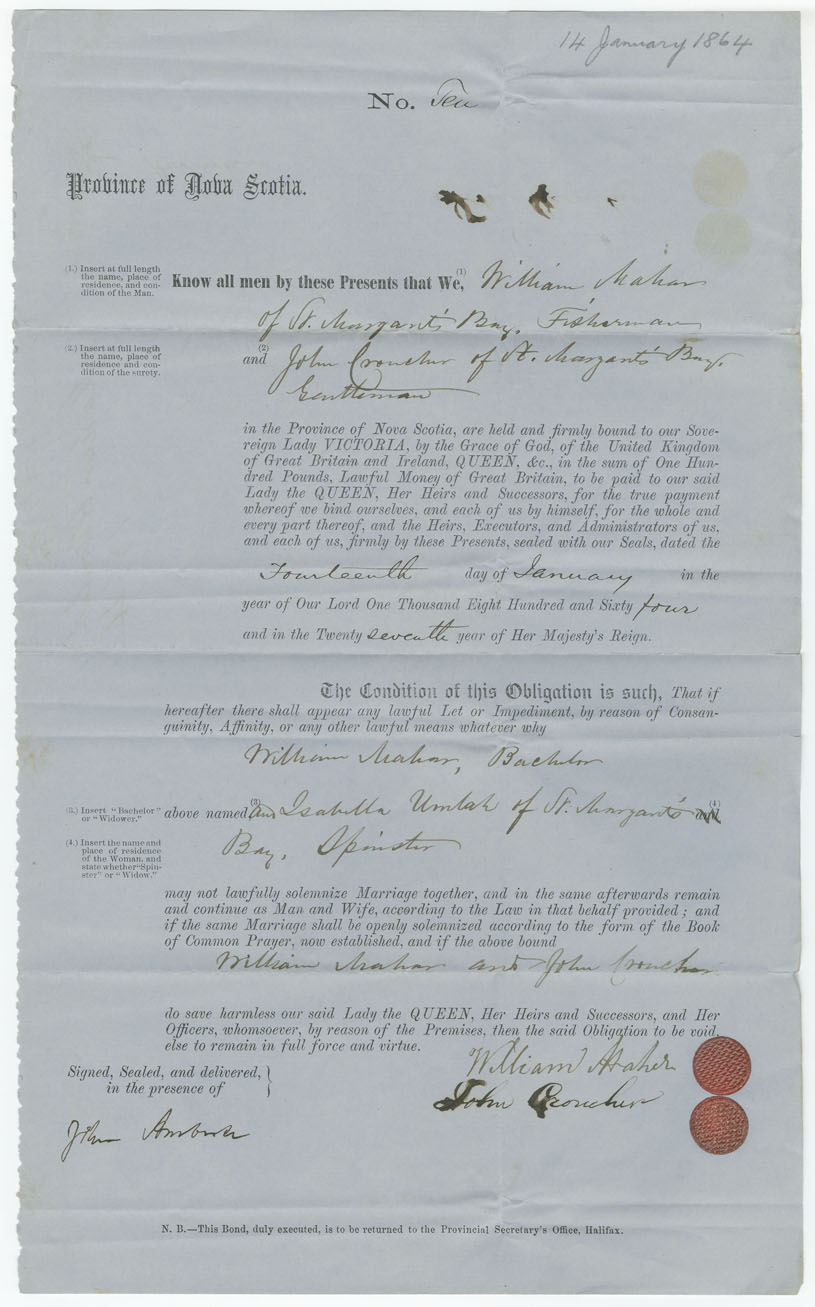 14 January 1864
No. Ten
Province of Nova Scotia.
(1.) Insert at full length
the name, place of
residence, and con-
dition of the Man.
Know all men by these Presents that We, (1) William Mahar
of St. Margaret's Bay, Fisherman
(2.) Insert at full length
the name, place of
residence and con-
dition of the surety.
(2)
and John Croucher of St. Margaret's Bay.
Gentleman
in the Province of Nova Scotia, are held and firmly bound to our Sove-
reign Lady VICTORIA, by the Grace of God, of the United Kingdom
of Great Britain and Ireland, QUEEN, &c., in the sum of One Hun-
dred Pounds, Lawful Money of Great Britain, to be paid to our said
Lady the QUEEN, Her Heirs and Successors, for the true payment
whereof we bind ourselves, and each of us by himself, for the whole and
every part thereof, and the Heirs, Executors, and Administrators of us,
and each of us, firmly by these Presents, sealed with our Seals, dated the
Fourteenth day of January in the
year of Our Lord One Thousand Eight Hundred and Sixty four
and in the Twenty seventh year of Her Majesty's Reign.
The Condition of this Obligation is such, That if
hereafter there shall appear any lawful Let or Impediment, by reason of Consan-
guinity, Affinity, or any other lawful means whatever why
William Mahar, Bachelor
(3.) Insert "Bachelor"
or "Widower."
above named (3) and Isabella Umlah of St. Margaret's and (4)
(4.) Insert the name and
place of residence
of the Woman, and
state whether "Spin-
ster" or "Widow."
Bay, Spinster
may not lawfully solemnize Marriage together, and in the same afterwards remain
and continue as Man and Wife, according to the Law in that behalf provided ; and
if the same Marriage shall be openly solemnized according to the form of the Book
of Common Prayer, now established, and if the above bound
William Mahar and John Croucher
do save harmless our said Lady the QUEEN, Her Heirs and Successors, and Her
Officers, whomsoever, by reason of the Premises, then the said Obligation to be void,
else to remain in full force and virtue.
Signed, Sealed, and delivered,
in the presence of
William Maher
John Croucher
John
N. B.—This Bond, duly executed, is to be returned to the Provincial Secretary's Office, Halifax.